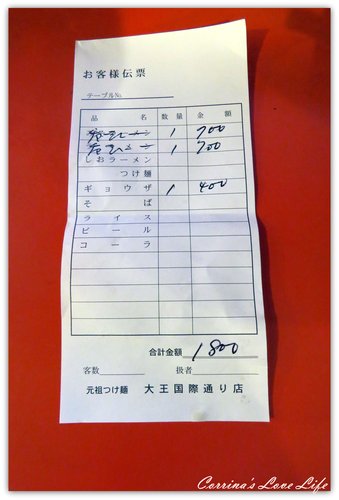 お客様伝票
テーブルNo.
品名 数量 金額
1 700
1 700
しおラーメン
つけ麺
ギョウザ 1 400
そば
ライス
ビール
コーラ
合計金額 1800
客数 扱者
元祖つけ麺 大王国際通り店
Corrina's Love Life